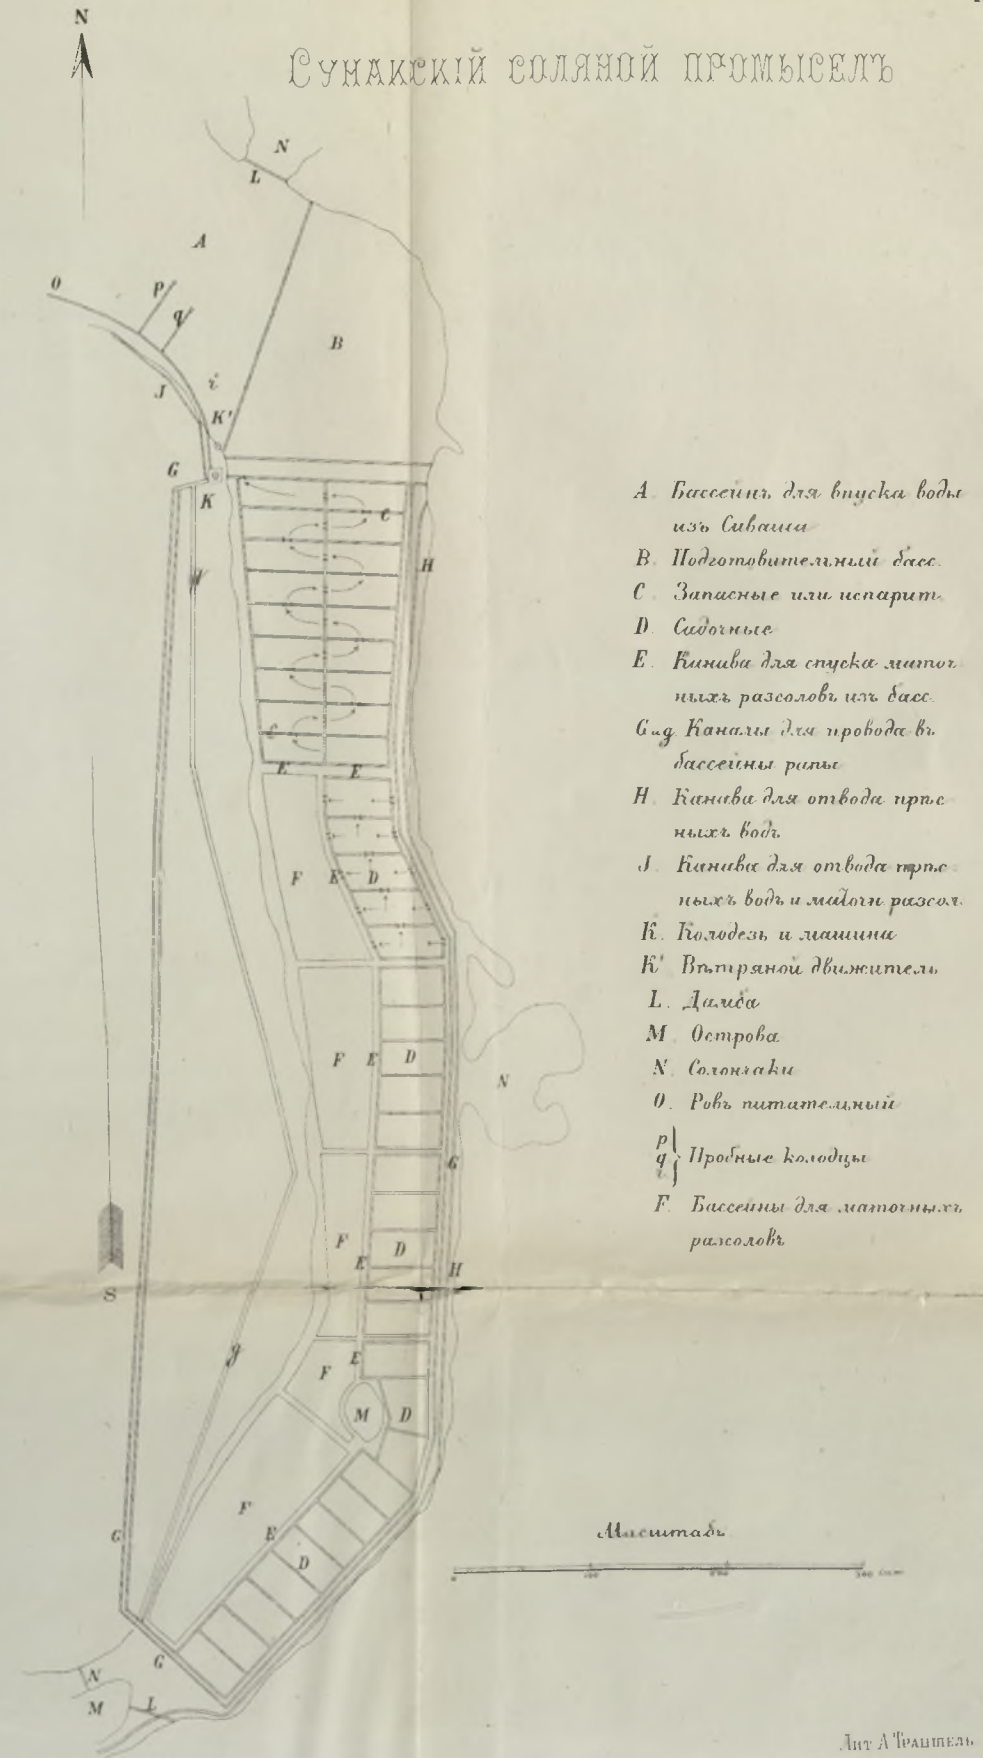 N
Сунакскій соляной промыселъ
N
L
A
O
p
q
B
i
J
K'
G
K
C
H
g
C
E E
F E D
F E D
N
G
F D
E
H
S
E
F
g
M D
F
G
E
D
G
N
M L
A Бассейнъ для впуска воды
изъ Сиваша
B. Подготовительный басс.
C Запасные или испарит.
D. Садочные
E. Канава для спуска маточ
ныхъ разсоловъ изъ басс.
G и g Каналы для провода въ
бассейны рапы
H. Канава для отвода прѣс
ныхъ водъ
J. Канава для отвода прѣс
ныхъ водъ и маточн. разсол.
K. Колодезь и машина
K' Вѣтряной двиɯитель
L. Дамба
M Острова
N. Солончаки
O. Ровъ питательный
p
q Пробные колодцы
i
F. Бассейны для маточныхъ
разсоловъ
Масштабъ
0 100 200 300 саж.
Лит А Траншель